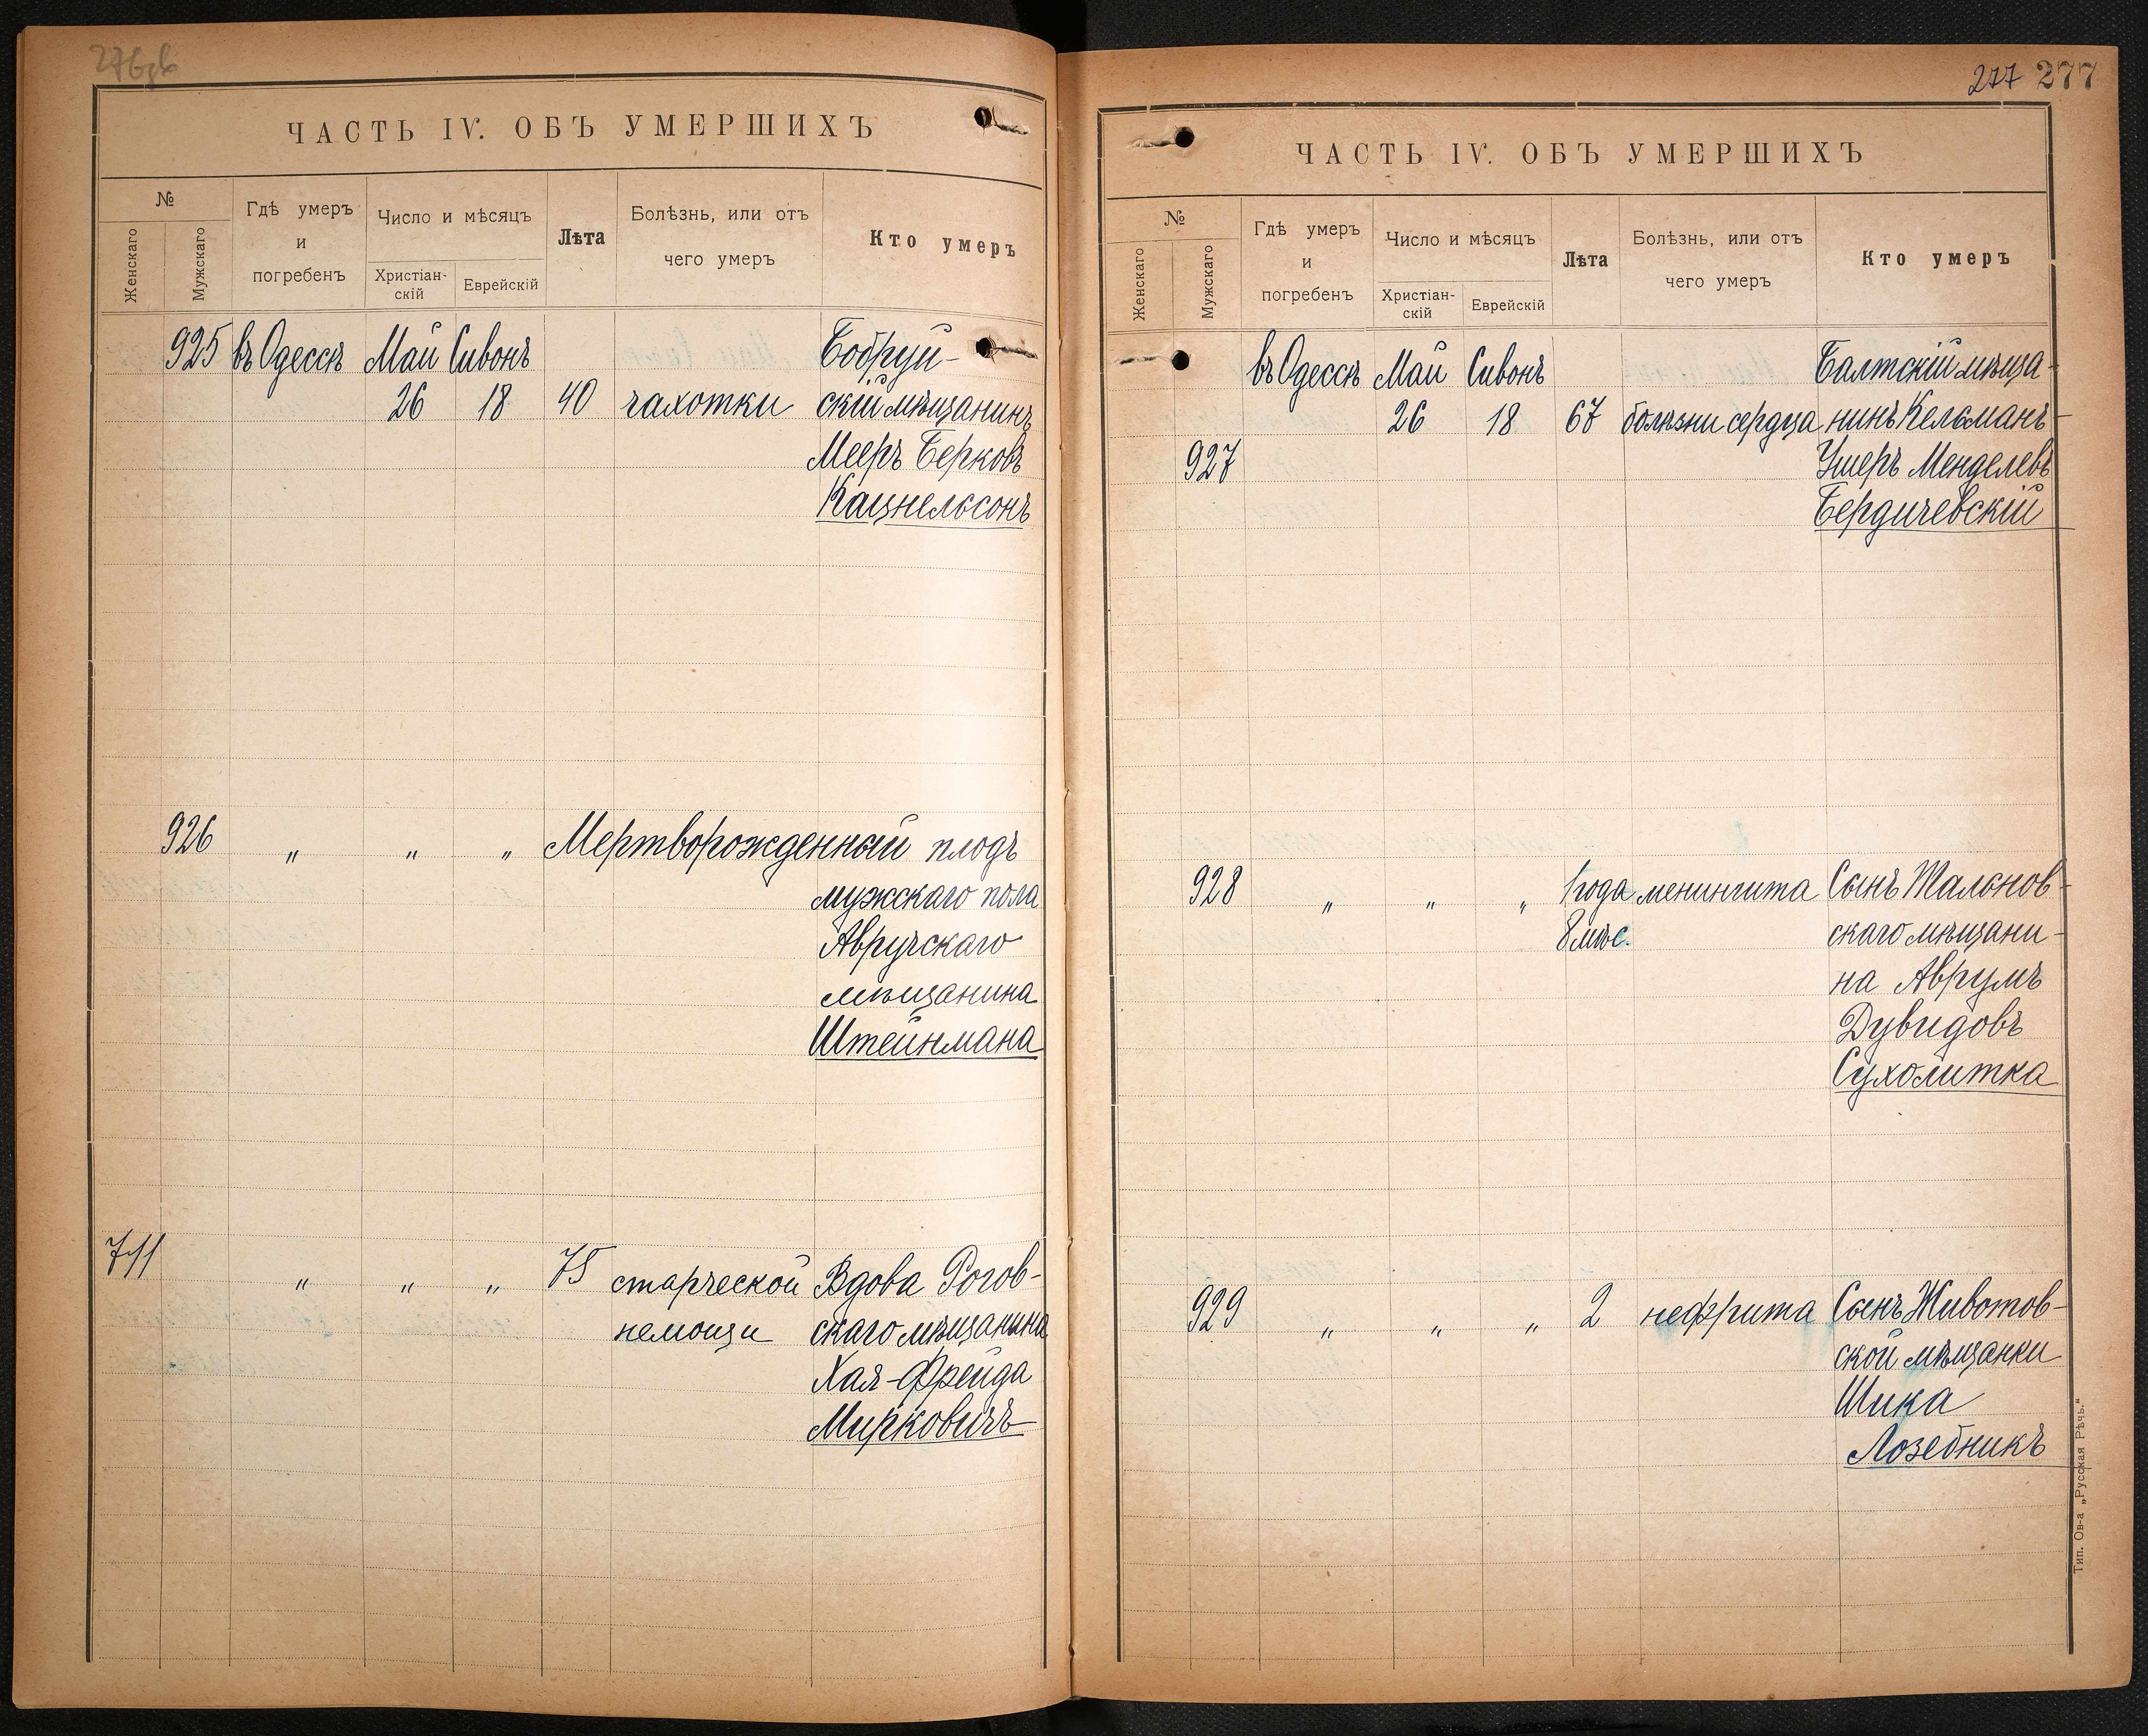 ЧАСТЬ IV. ОБЪ УМЕРШИХЪ
№
Женскаго
Мужскаго
Гдѣ умеръ
и
погребенъ
Число и мѣсяцъ
Христіан-
скій
Еврейскій
Лѣта
Болѣзнь, или отъ
чего умеръ
Кто умеръ
925 въ Одессѣ Май Сивонъ Бобруй-
26 18 40 чахотки скій мѣщанинъ
Мееръ Берковъ
Кацнельсонъ
926 „ „ „ Мертворожденный плодъ
мужскаго пола
Авручскаго
мѣщанина
Штейнмана
711 „ „ „ 75 старческой Вдова Рогов-
немощи скаго мѣщанина
Хая-Фрейда
Мирковичъ
277 277
ЧАСТЬ IV. ОБЪ УМЕРШИХЪ
№
Женскаго
Мужскаго
Гдѣ умеръ
и
погребенъ
Число и мѣсяцъ
Христіан-
скій
Еврейскій
Лѣта
Болѣзнь, или отъ
чего умеръ
Кто умеръ
въ Одессѣ Май Сивонъ Балтскій мѣща-
26 18 67 болѣзни сердца нинъ Кельманъ-
927 Ушеръ Менделевъ
Бердичевскій
928 „ „ „ 1 года менингита Сынъ Тальнов-
8 мѣс. скаго мѣщани-
на Аврумъ
Дувидовъ
Сухолитка
929 „ „ „ 2 нефрита Сынъ Животов-
ской мѣщанки
Шика
Лозебникъ
Тип. Ов-а „Русская Рѣчь.“